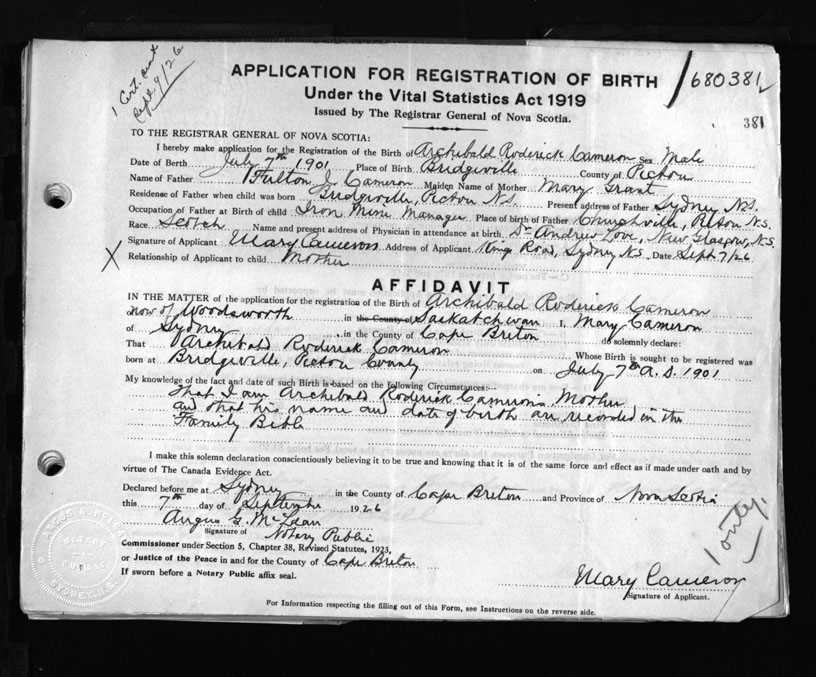 1 Cert. sent
Sept 9/26
APPLICATION FOR REGISTRATION OF BIRTH
680381
Under the Vital Statistics Act 1919
Issued by The Registrar General of Nova Scotia.
381
TO THE REGISTRAR GENERAL OF NOVA SCOTIA:
I hereby make application for the Registration of the Birth of Archibald Roderick Cameron Sex Male
Date of Birth July 7th 1901 Place of Birth Bridgeville County of Pictou
Name of Father Fulton J. Cameron Maiden Name of Mother Mary Grant
Residense of Father when child was born Bridgeville, Pictou N.S. Present address of Father Sydney N.S.
Occupation of Father at Birth of child Iron Mine Manager Place of birth of Father Churchville, Pictou N.S.
Race Scotch Name and present address of Physician in attendance at birth Dr Andrew Love, New Glasgow, N.S.
Signature of Applicant Mary Cameron Address of Applicant Kings Road, Sydney N.S. Date Sept 7/26
X Relationship of Applicant to child Mother
AFFIDAVIT
IN THE MATTER of the application for the registration of the Birth of Archibald Roderick Cameron
now of Woodsworth in the County of Saskatchewan I, Mary Cameron
of Sydney in the County of Cape Breton do solemnly declare:
That Archibald Roderick Cameron Whose Birth is sought to be registered was
born at Bridgeville, Pictou County on July 7th A.D. 1901
My knowledge of the fact and date of such Birth is based on the following Circumstances:—
That I am Archibald Roderick Cameron's Mother
and that his name and date of birth are recorded in the
Family Bible
I make this solemn declaration conscientiously believing it to be true and knowing that it is of the same force and effect as if made under oath and by
virtue of The Canada Evidence Act.
Declared before me at Sydney in the County of Cape Breton and Province of Nova Scotia
this 7th day of September 1926
Angus McLean
Signature of Notary Public
Commissioner under Section 5, Chapter 38, Revised Statutes, 1923,
or Justice of the Peace in and for the County of Cape Breton
If sworn before a Notary Public affix seal.
1 only.
Mary Cameron
Signature of Applicant.
For Information respecting the filling out of this Form, see Instructions on the reverse side.
NOTARY
SYDNEY, N.S.